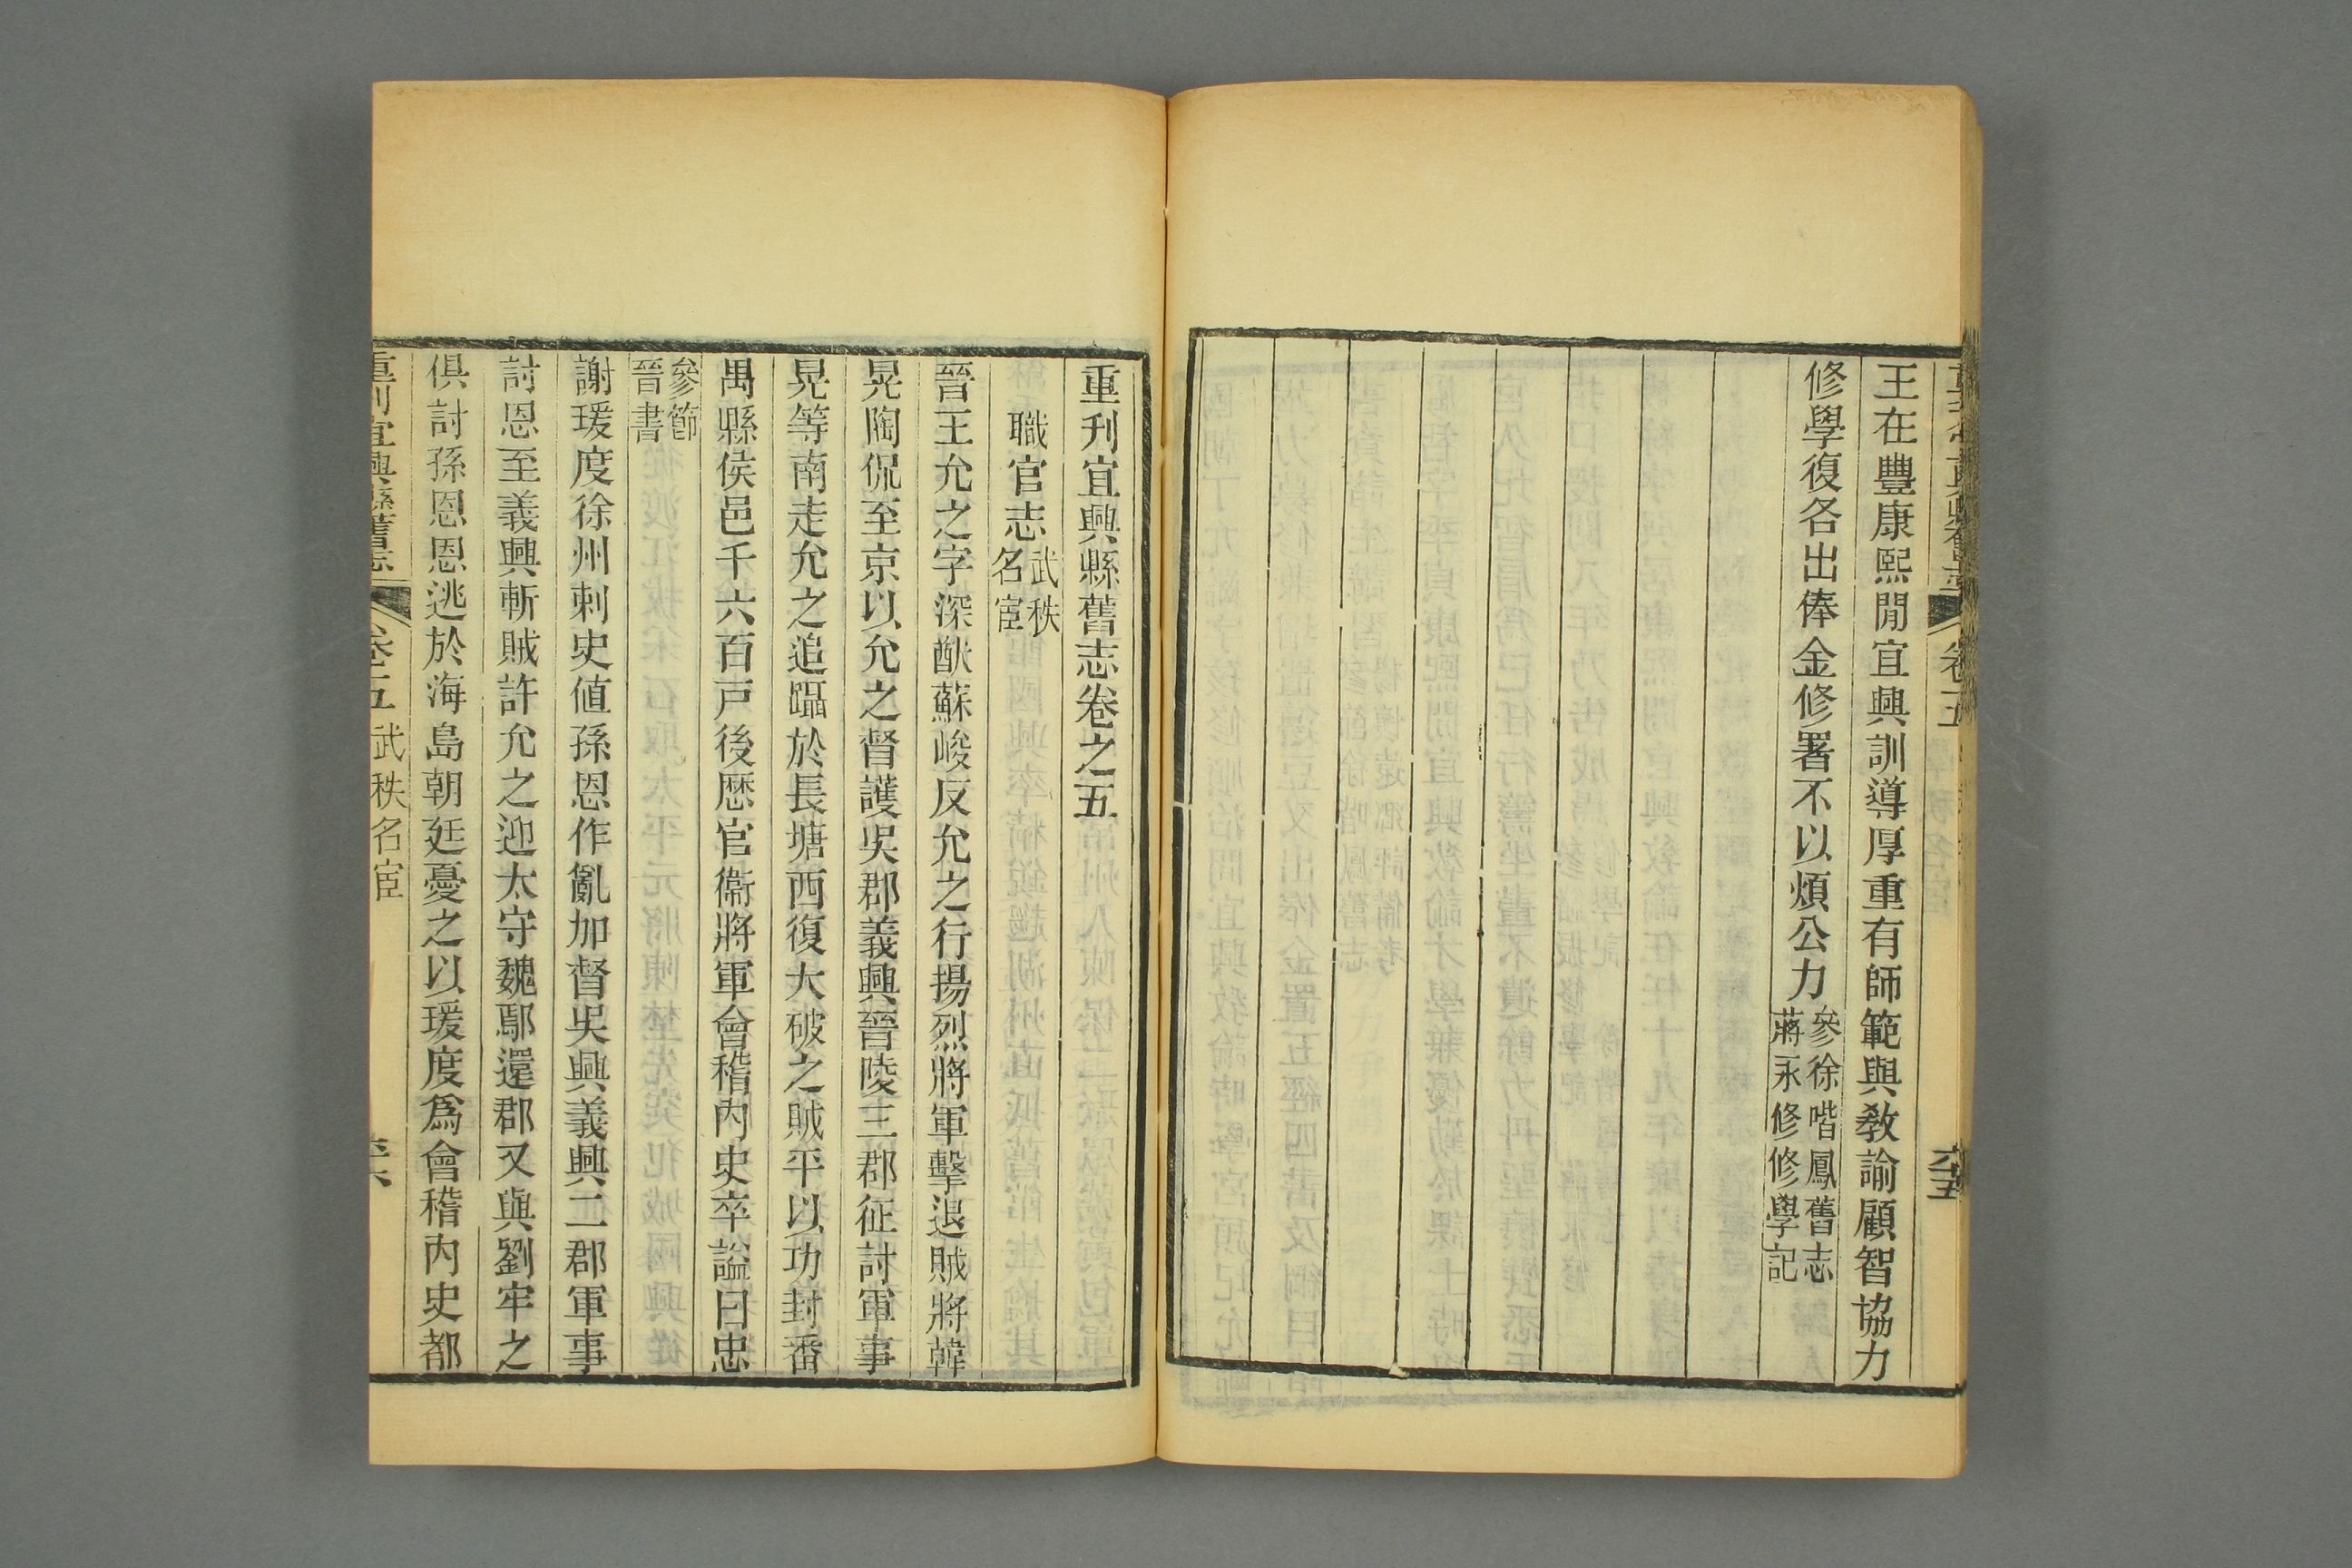 王在豐康熙閒宜興訓導厚重有師範與敎諭顧智協力
修學復各出俸金修署不以煩公力參徐喈鳳舊志
蔣永修修學記
六五
重刊宜興縣舊志卷之五
職官志武秩
名宦
晉王允之字深猷蘇峻反允之行揚烈將軍擊退賊將韓
晃陶侃至京以允之督護吳郡義興晉陵三郡征討軍事
晃等南走允之追躡於長塘西復大破之賊平以功封番
禺縣侯邑千六百戸後歴官衞將軍會稽内史卒諡曰忠
參節
晉書
謝瑗度徐州刺史値孫恩作亂加督吳興義興二郡軍事
討恩至義興斬賊許允之迎太守魏鄢還郡又與劉牢之
俱討孫恩恩逃於海島朝廷憂之以瑗度爲會稽内史都
重刊宜興縣舊志
卷五
武秩名宦